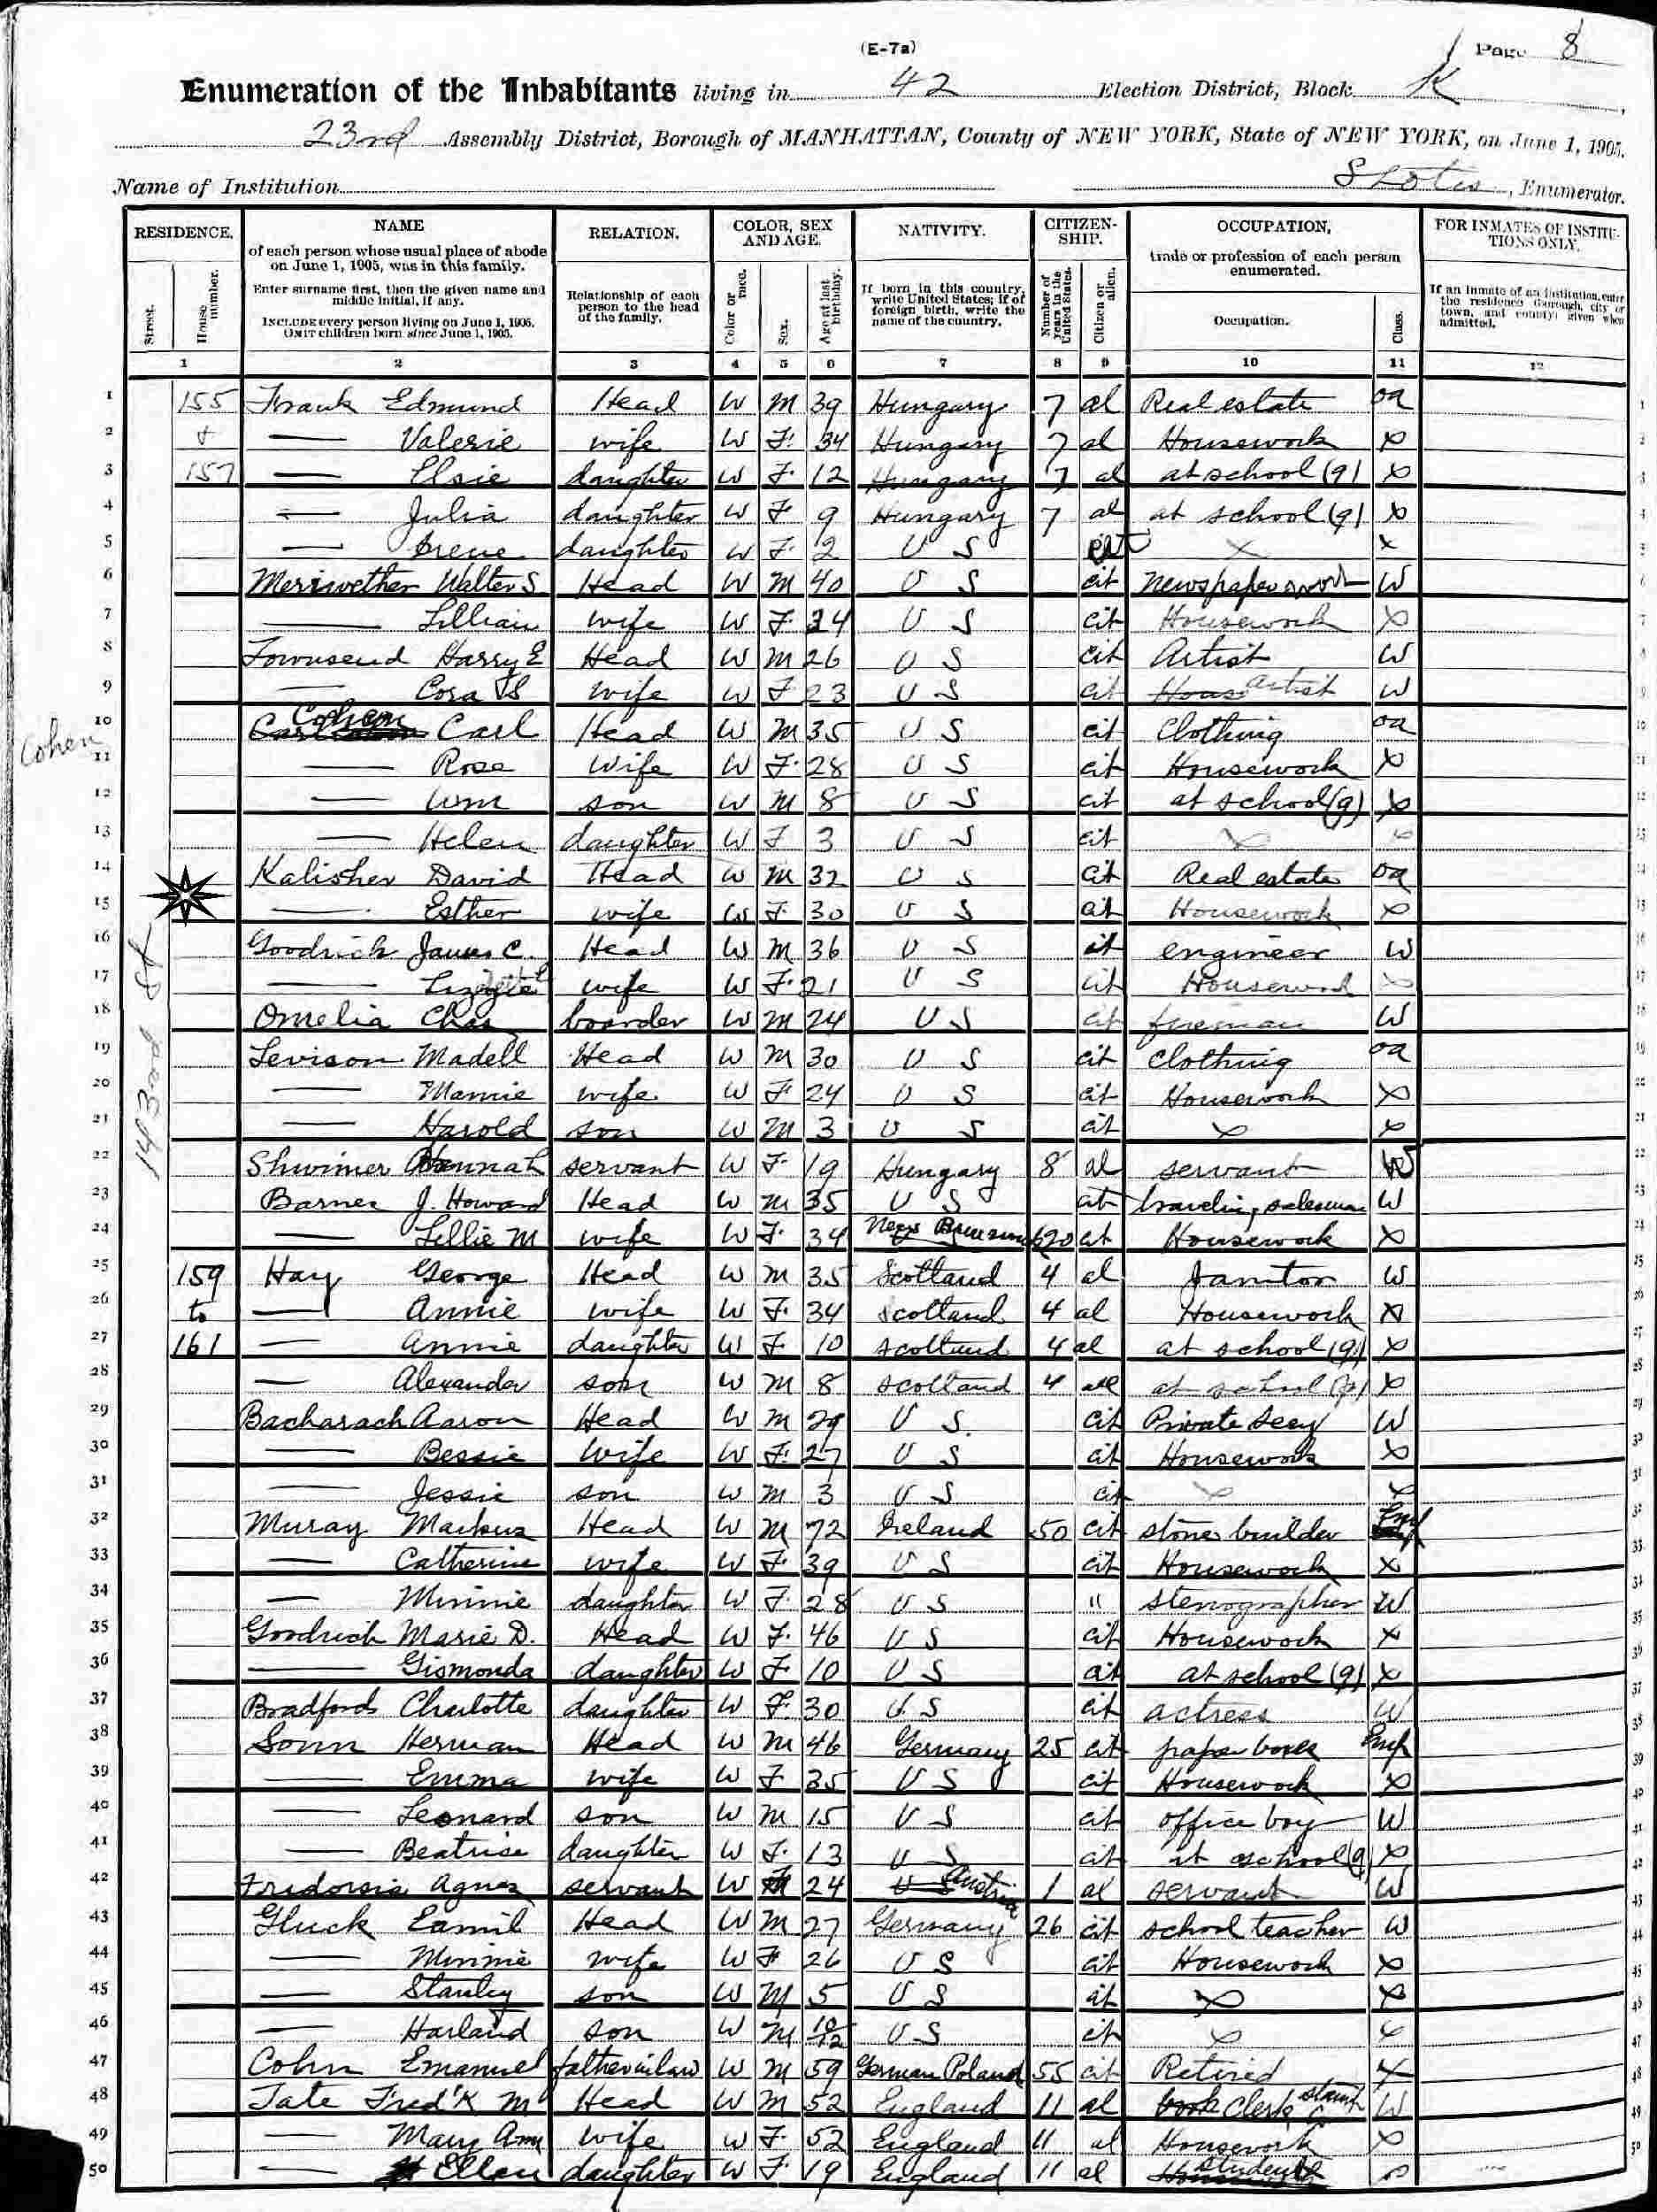 (E-7a)
Page 8
Enumeration of the Inhabitants living in 42 Election District, Block K,
23rd Assembly District, Borough of MANHATTAN, County of NEW YORK, State of NEW YORK, on June 1, 1905.
Name of Institution , Enumerator.
RESIDENCE. NAME RELATION. COLOR, SEX AND AGE. NATIVITY. CITIZEN-SHIP. OCCUPATION. FOR INMATES OF INSTITU-TIONS ONLY.
of each person whose usual place of abode on June 1, 1905, was in this family.
Enter surname first, then the given name and middle initial, if any.
INCLUDE every person living on June 1, 1905. OMIT children born since June 1, 1905.
Relationship of each person to the head of the family.
If born in this country, write United States; if of foreign birth, write the name of the country.
trade or profession of each person enumerated.
If an inmate of an institution, enter the residence (borough, city or town, and county) given when admitted.
Street. House number. Color or race. Sex. Age at last birthday. Number of Years in the United States. Citizen or alien. Occupation. Class.
1 2 3 4 5 6 7 8 9 10 11 12
1 155 Frank Edmund Head W M 39 Hungary 7 al Real estate oa
2 + — Valerie wife W F. 34 Hungary 7 al Housework x
3 157 — Elsie daughter W F. 12 Hungary 7 al at school (g) x
4 — Julia daughter W F 9 Hungary 7 al at school (g) x
5 — Irene daughter W F. 2 U S cit x x
6 Meriwether Walter S Head W M 40 U S cit W
7 — Lillian wife W F. 34 U S cit Housework x
8 Townsend Harry E Head W M 26 U S cit Artist W
9 — Cora wife W F 23 U S cit Artist W
10 Cohen Carl Head W M 35 U S cit Clothing oa
Cohen
11 — Rose wife W F. 28 U S cit Housework x
12 — Wm son W M 8 U S cit at school (g) x
13 — Helen daughter W F 3 U S cit x x
14 Kalisher David Head W M 32 U S cit Real estate oa
15 — Esther wife W F. 30 U S cit Housework x
143rd St
16 Goodrich James C. Head W M 36 U S cit engineer W
17 — wife W F. 21 U S cit Housework x
18 Omelia Chas boarder W M 24 U S cit fireman W
19 Levison Madell Head W M 30 U S cit Clothing oa
20 — Mamie wife W F 24 U S cit Housework x
21 — Harold son W M 3 U S cit x x
22 Shwimer Hannah servant W F. 19 Hungary 8 al servant W
23 Barner J. Howard Head W M 35 U S cit traveling salesman W
24 — Lillie M wife W F. 34 New Brunswick 20 cit Housework x
25 159 Hay George Head W M 35 Scotland 4 al Janitor W
26 to — Annie wife W F. 34 Scotland 4 al Housework x
27 161 — Annie daughter W F. 10 Scotland 4 al at school (g) x
28 — Alexander son W M 8 Scotland 4 al at school x
29 Bacharach Aaron Head W M 29 U S. cit Private Secy W
30 — Bessie wife W F. 27 U S cit Housework x
31 — Jessie son W M 3 U S cit x x
32 Muray Markus Head W M 72 Ireland 50 cit stone builder Emp
33 — Catherine wife W F. 39 U S cit Housework x
34 — Minnie daughter W F. 28 U S " stenographer W
35 Goodrich Marie D. Head W F. 46 U S cit Housework x
36 — Gismonda daughter W F 10 U S cit at school (g) x
37 Bradford Charlotte daughter W F. 30 U. S cit actress W
38 Sonn Herman Head W M 46 Germany 25 cit paper boxes Emp
39 — Emma wife W F 35 U S cit Housework x
40 — Leonard son W M 15 U S cit office boy W
41 — Beatrice daughter W F. 13 U S cit at school (g) x
42 Agnes servant W F 24 Austria 1 al servant W
43 Gluck Eamil Head W M 27 Germany 26 cit school teacher W
44 — Minnie wife W F 26 U S cit Housework x
45 — Stanley son W M 5 U S cit x x
46 — Harland son W M 10/12 U S cit x x
47 Cohn Emanuel father in law W M 59 German Poland 55 cit Retired x
48 Tate Fred'k M Head W M 52 England 11 al Clerk W
49 — Mary Ann wife W F. 52 England 11 al Housework x
50 — Ellen daughter W F. 19 England 11 al student x